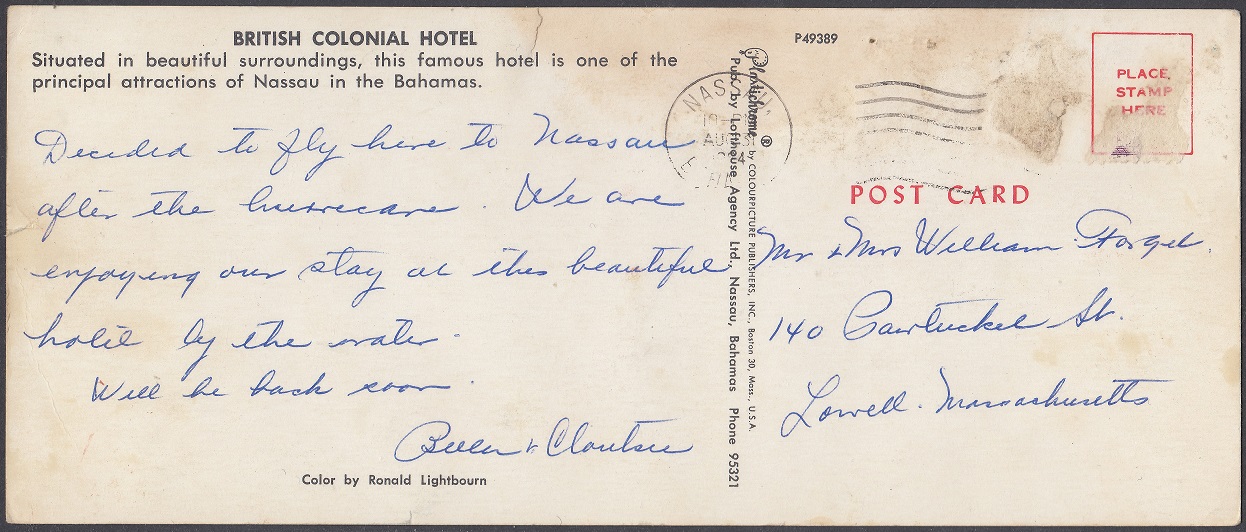 BRITISH COLONIAL HOTEL
Situated in beautiful surroundings, this famous hotel is one of the
principal attractions of Nassau in the Bahamas.
Decided to fly here to Nassau
after the hurricane. We are
enjoying our stay at this beautiful
hotel by the water.
Will be back soon.
&
Color by Ronald Lightbourn
Plastichrome ® by COLOURPICTURE PUBLISHERS, INC., Boston 30, Mass., U.S.A.
Pub. by Lofthouse Agency Ltd., Nassau, Bahamas Phone 95321
P49389
NASSAU
AUG
PLACE
STAMP
HERE
POST CARD
Mr & Mrs William
140 Pawtucket St.
Lowell. Massachusetts